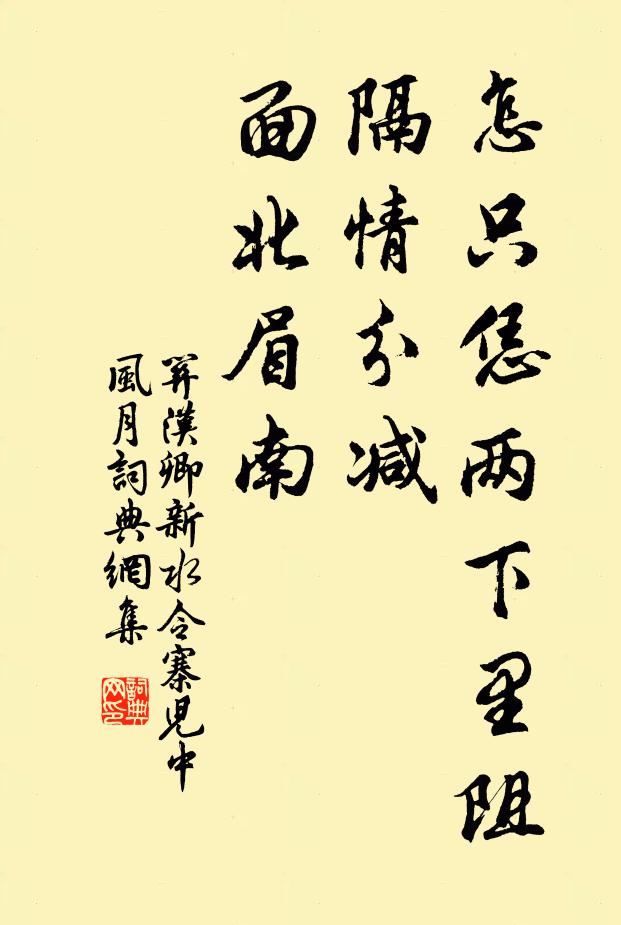 怎只恁两下里阻
隔情分减
面北眉南
関漢卿新水令寨児中
風月詞典網集
詞典
网印